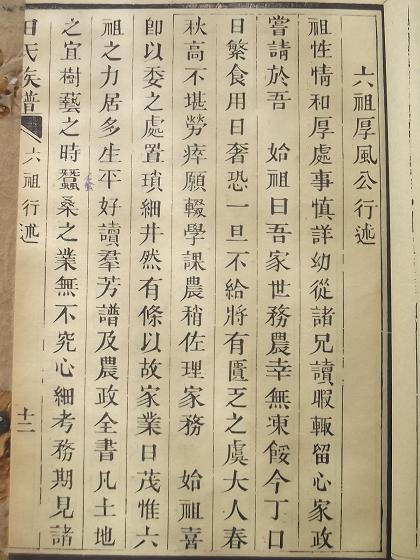 六祖厚風公行述
祖性情和厚處事慎詳幼從諸兄讀暇輙留心家政
嘗請於吾 始祖曰吾家世務農幸無凍餒今丁口
日繁食用日奢恐一旦不給將有匱乏之虞大人春
秋高不堪勞瘁願輟學課農稍佐理家務 始祖喜
卽以委之處置瑣細井然有條以故家業日茂惟六
祖之力居多生平好讀羣芳譜及農政全書凡土地
之宜樹藝之時蠶桑之業無不究心細考務期見諸
田氏族譜 六祖行述 十二